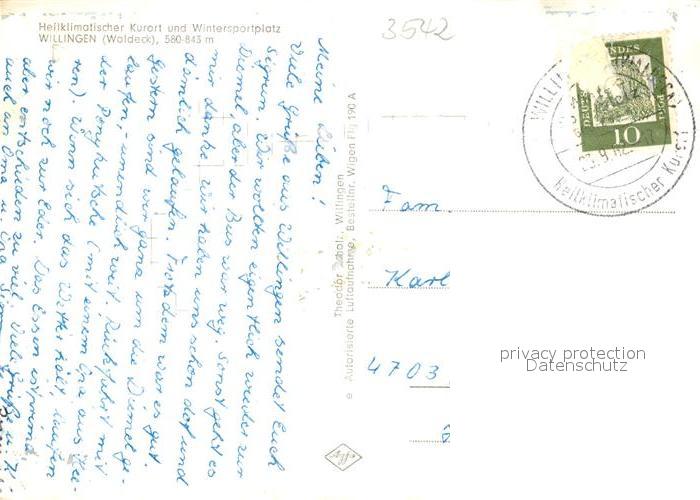 Heilklimatischer Kurort und Wintersportplatz
WILLINGEN (Waldeck), 580-843 m
3542
Meine Lieben!
Viele Grüße aus Willingen sendet Euch
Sigrun. Wir wollten eigentlich wieder zur
Diemel aber der Bus war weg. Sonst geht es
mir danke. Wir haben uns schon dort und
ziemlich gelaufen. Trotzdem war es gut.
Gestern sind wir ganz um die Diemel ge-
laufen, unendlich weit. Rückfahrt mit
der Ponykutsche (mit einem Opa aus
Wenn sich das Wetter hält, laufen
wir noch zur Eder. Das Essen ist prima
aber entschieden zu viel. Viele Grüße
auch an Oma u. Opa
Theodor Scholz, Willingen
e Autorisierte Luftaufnahme, Bestellnr. Wigen Flg 190 A
DEUTSCHE BUNDESPOST
10
WILLINGEN
Heilklimatischer Kurort
Fam.
Karl
4703
privacy protection
Datenschutz